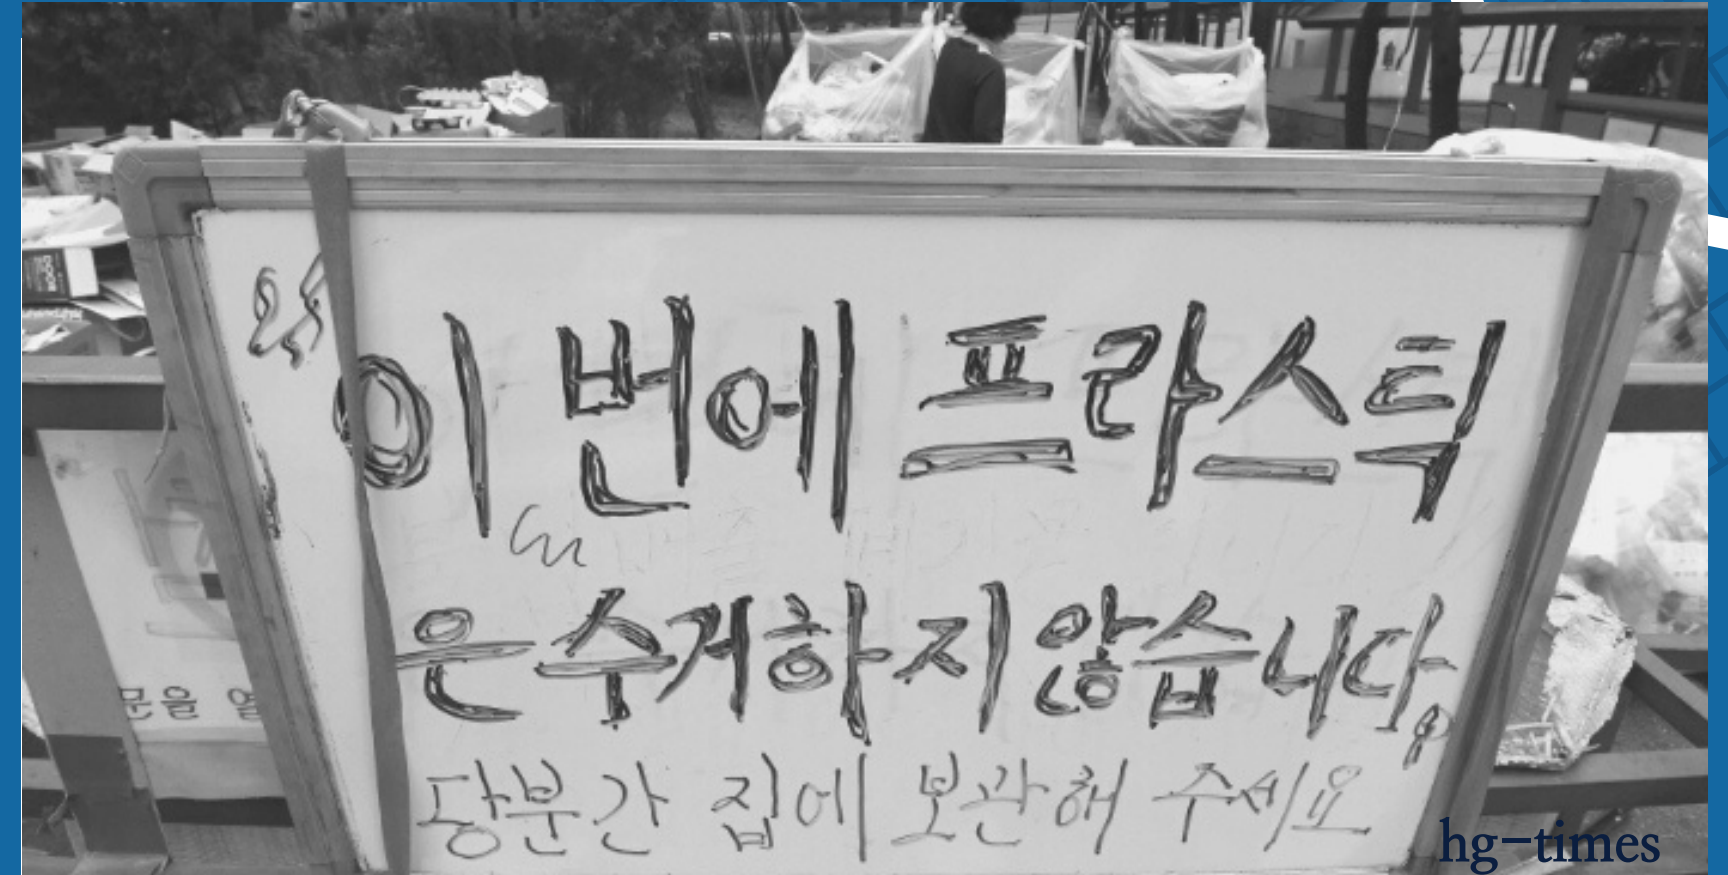 이번에 프라스틱
은 수거하지 않습니다.
당분간 집에 보관해 주세요
문을 열
hg-times